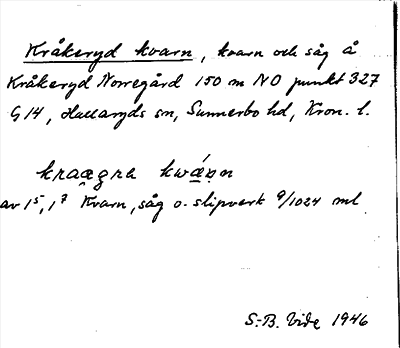 Kråkeryd kvarn, kvarn och såg å
Kråkeryd Norregård 150 m NO punkt 327
G14, Hallaryds sn, Sunnerbo hd, Kron. l.
av 1⁵, 1⁷ Kvarn, såg o. slipverk 9/1024 ml
S.-B. Vide 1946